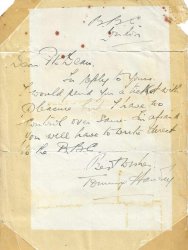 B.B.C
London
Dear Mr Dean,
In reply to yours
I would send you a ticket with
pleasure but I have no
control over same. Im afraid
you will have to write direct
to the B.B.C
Best wishes
Hancy